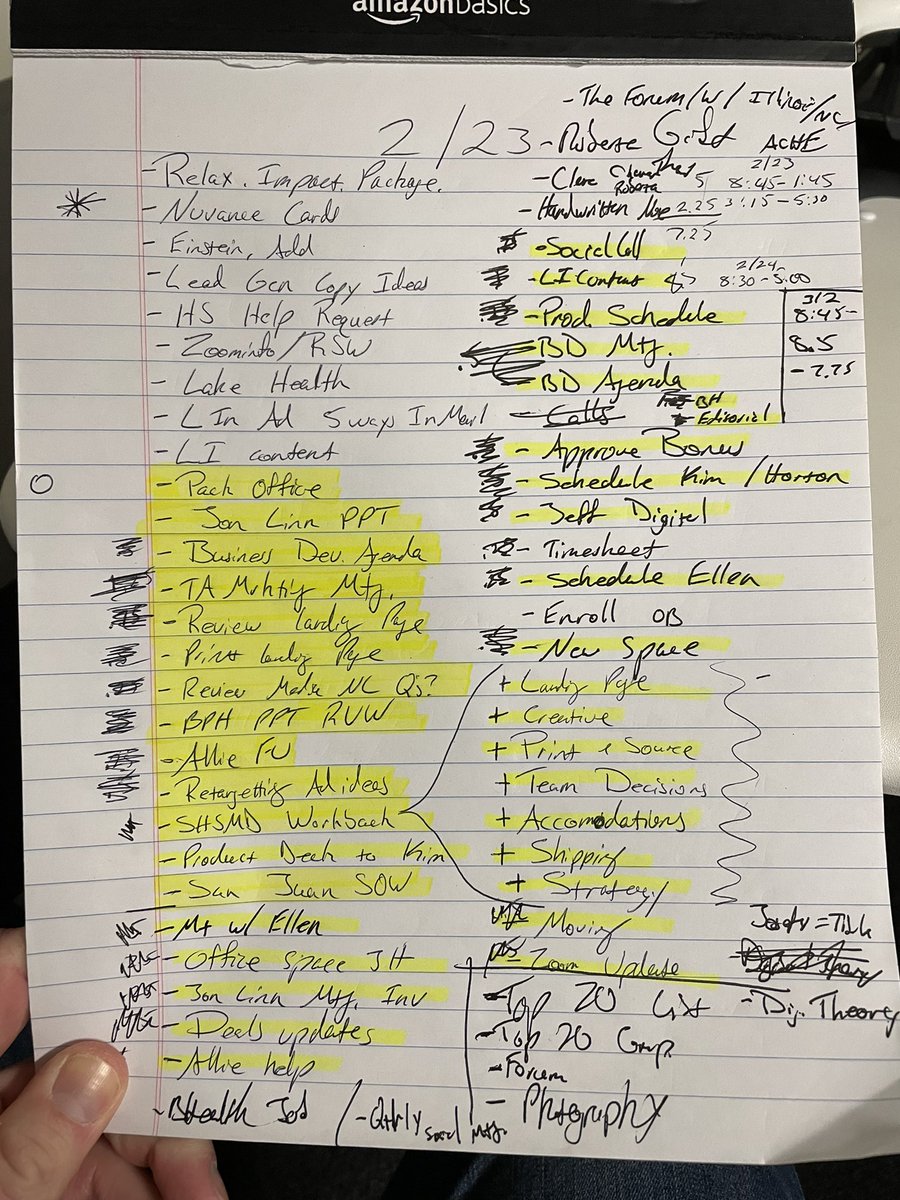 amazonbasics
- The Forum / W / Illinois / NC
2/23
- Gift
ACHE
2/23
- Relax. Impact. Package.
8:45-1:45
- Nuvance Cards
- Handwritten 2.25 3:15-5:30
7.25
- Einstein, Add
- Social Call
2/24
- Lead Gen Copy Ideas
- LI Content
8:30-5:00
- HS Help Request
- Prod. Schedule
3/2
8:45-
- Zoominfo/RSW
- BD Mtg.
8.5
- Lake Health
- BD Agenda
- 7.25
- LIn Ad 5 ways InMail
- Calls
BH
Editorial
- LI content
- Approve Bonus
- Pack Office
- Schedule Kim / Horton
- Jon Linn PPT
- Jeff Digital
- Business Dev. Agenda
- Timesheet
- TA Mtg.
- Schedule Ellen
- Review landing Page
- Enroll OB
- Print landing Page
- New Space
- Review Media NC Q's?
+ Landing Page
- BPH PPT RVW
+ Creative
- Allie FU
+ Print & Source
- Retargetting Ad ideas
+ Team Decisions
- SHSMD Workback
+ Accomodations
- Product Deck to Kim
+ Shipping
- San Juan SOW
+ Strategy
- Mt w/ Ellen
- Moving
- Office Space JH
- Zoom Update
- Jon Linn Mtg. Inv
- Top 20 List
- Dig. Theory
- Deals updates
- Top 20 Group
- Allie help
- Forum
- BHealth
- Qtrly Mtg.
- Photography